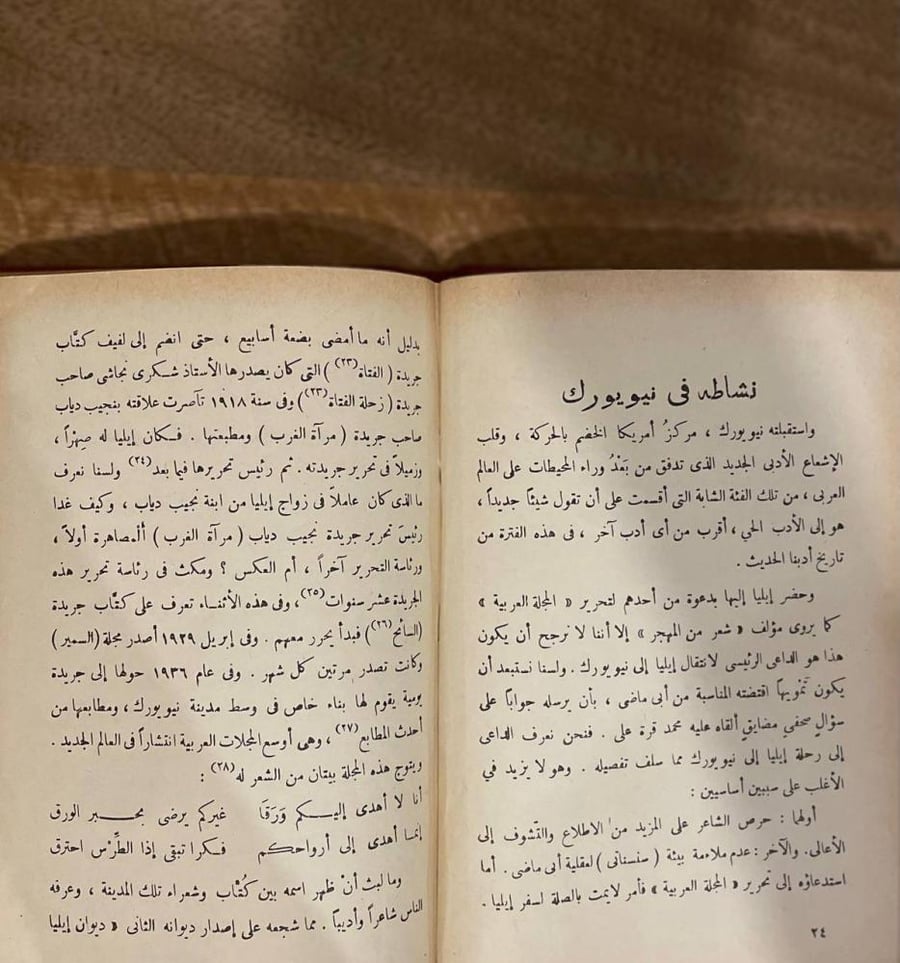 نشاطه فى نيويورك
واستقبلته نيويورك ، مركزُ أمريكا الخضم بالحركة ، وقلب
الإشعاع الأدبى الجديد الذى تدفق من بَعْدُ وراء المحيطات على العالم
العربى ، من تلك الفئة الشابة التى أقسمت على أن تقول شيئاً جديداً ،
هو إلى الأدب الحي ، أقرب من أى أدب آخر ، فى هذه الفترة من
تاريخ أدبنا الحديث .
وحضر إيليا إليها بدعوة من أحدهم لتحرير « المجلة العربية »
كما يروى مؤلف « شعر من المهجر » إلا أننا لا نرجح أن يكون
هذا هو الداعى الرئيسى لانتقال إيليا إلى نيويورك . ولسنا نستبعد أن
يكون تَمْويهاً اقتضته المناسبة من أبى ماضى ، بأن يرسله جواباً على
سؤالٍ صحفي مضايقٍ ألقاه عليه محمد قرة على . فنحن نعرف الداعى
إلى رحلة إيليا إلى نيويورك مما سلف تفصيله . وهو لا يزيد في
الأغلب على سببين أساسيين :
أولها : حرص الشاعر على المزيد من الاطلاع والتَّشوف إلى
الأعالى . والآخر : عدم ملاءمة بيئة ( سنسناتى ) لعقلية أبى ماضى . أما
استدعاؤه إلى تحرير « المجلة العربية » فأمر لا يمت بالصلة لسفر إيليا .
٢٤
بدليل أنه ما أمضى بضعة أسابيع ، حتى انضم إلى لفيف كتَّاب
جريدة ( الفتاة(٢٣) ) التى كان يصدرها الأستاذ شكرى نجاشى صاحب
جريدة ( زحلة الفتاة(٢٣) ) وفى سنة ١٩١٨ تآصرت علاقته بنجيب دياب
صاحب جريدة ( مرآة الغرب ) ومطبعتها . فكان إيليا له صِهْراً ،
وزميلاً فى تحرير جريدته . ثم رئيس تحريرها فيما بعد(٢٤) ولسنا نعرف
ما الذى كان عاملاً فى زواج إيليا من ابنة نجيب دياب ، وكيف غدا
رئيسَ تحرير جريدة نجيب دياب ( مرآة الغرب ) أَلمصاهرة أولاً ،
ورئاسة التحرير آخراً ، أم العكس ؟ ومكث فى رئاسة تحرير هذه
الجريدة عشر سنوات(٢٥) ، وفى هذه الأثناء تعرف على كتَّاب جريدة
(السائح(٢٦) ) فبدأ يحرر معهم . وفى إبريل ١٩٢٩ أصدر مجلة (السمير)
وكانت تصدر مرتين كل شهر . وفى عام ١٩٣٦ حولها إلى جريدة
يومية يقوم لها بناء خاص فى وسط مدينة نيويورك ، ومطابعها من
أحدث المطابع(٢٧) ، وهى أوسع المجلات العربية انتشاراً فى العالم الجديد .
ويتوج هذه المجلة بيتان من الشعر له(٢٨) :
أنا لا أهدى إليكم وَرَقَا غيركم يرضى بحبر الورق
إنما أهدى إلى أرواحكم فكرا تبقى إذا الطِّرْس احترق
وما لبث أنْ ظهر اسمه بين كُتَّاب وشعراء تلك المدينة ، وعرفه
الناس شاعراً وأديباً . مما شجعه على إصدار ديوانه الثانى « ديوان إيليا